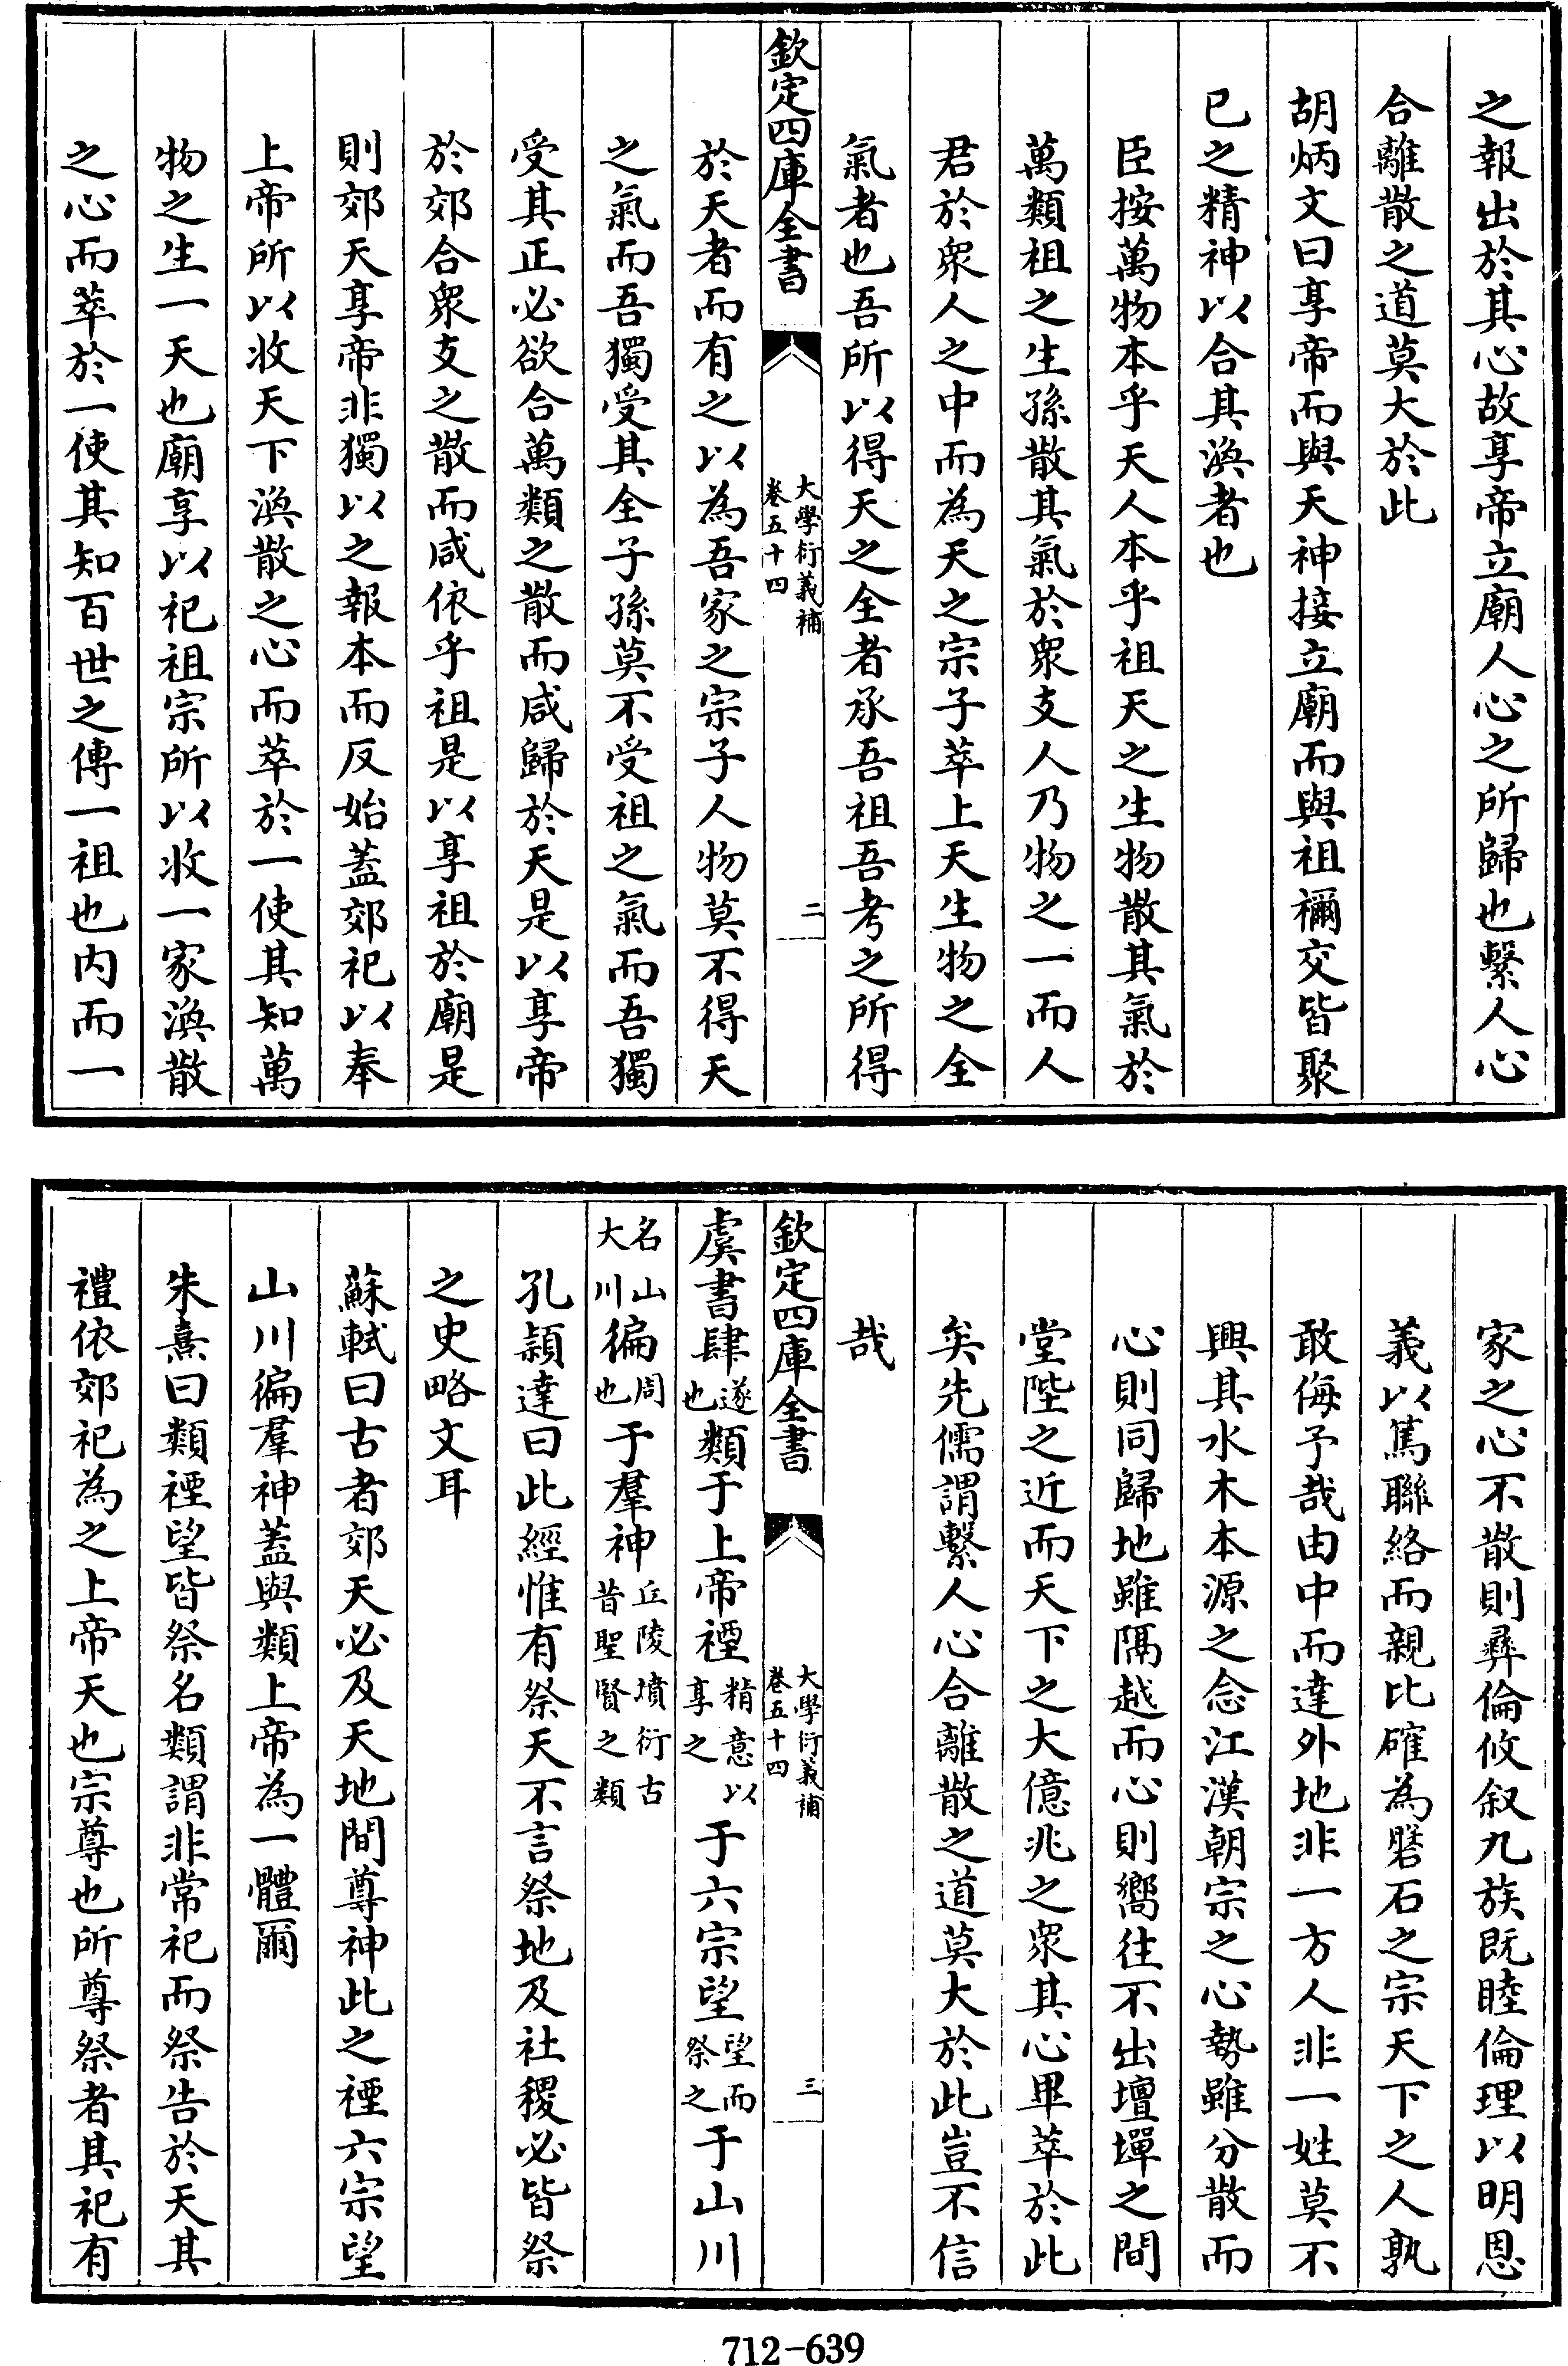 之報出於其心故享帝立廟人心之所歸也繫人心
合離散之道莫大於此
胡炳文曰享帝而與天神接立廟而與祖禰交皆聚
已之精神以合其渙者也
臣按萬物本乎天人本乎祖天之生物散其氣於
萬類祖之生孫散其氣於衆支人乃物之一而人
君於衆人之中而為天之宗子萃上天生物之全
氣者也吾所以得天之全者承吾祖吾考之所得
欽定四庫全書
大學衍義補
卷五十四
二
於天者而有之以為吾家之宗子人物莫不得天
之氣而吾獨受其全子孫莫不受祖之氣而吾獨
受其正必欲合萬類之散而咸歸於天是以享帝
於郊合衆支之散而咸依乎祖是以享祖於廟是
則郊天享帝非獨以之報本而反始蓋郊祀以奉
上帝所以收天下渙散之心而萃於一使其知萬
物之生一天也廟享以祀祖宗所以收一家渙散
之心而萃於一使其知百世之傳一祖也内而一
家之心不散則彞倫攸叙九族既睦倫理以明恩
義以篤聯絡而親比確為磐石之宗天下之人孰
敢侮予哉由中而達外地非一方人非一姓莫不
興其水木本源之念江漢朝宗之心勢雖分散而
心則同歸地雖隔越而心則嚮往不出壇墠之間
堂陛之近而天下之大億兆之衆其心畢萃於此
矣先儒謂繫人心合離散之道莫大於此豈不信
哉
欽定四庫全書
大學衍義補
卷五十四
三
虞書肆遂也類于上帝禋精意以享之于六宗望望而祭之于山川
名山大川徧周也于羣神丘陵墳衍古昔聖賢之類
孔穎達曰此經惟有祭天不言祭地及社稷必皆祭
之史略文耳
蘇軾曰古者郊天必及天地間尊神此之禋六宗望
山川徧羣神蓋與類上帝為一體爾
朱熹曰類禋望皆祭名類謂非常祀而祭告於天其
禮依郊祀為之上帝天也宗尊也所尊祭者其祀有
712-639